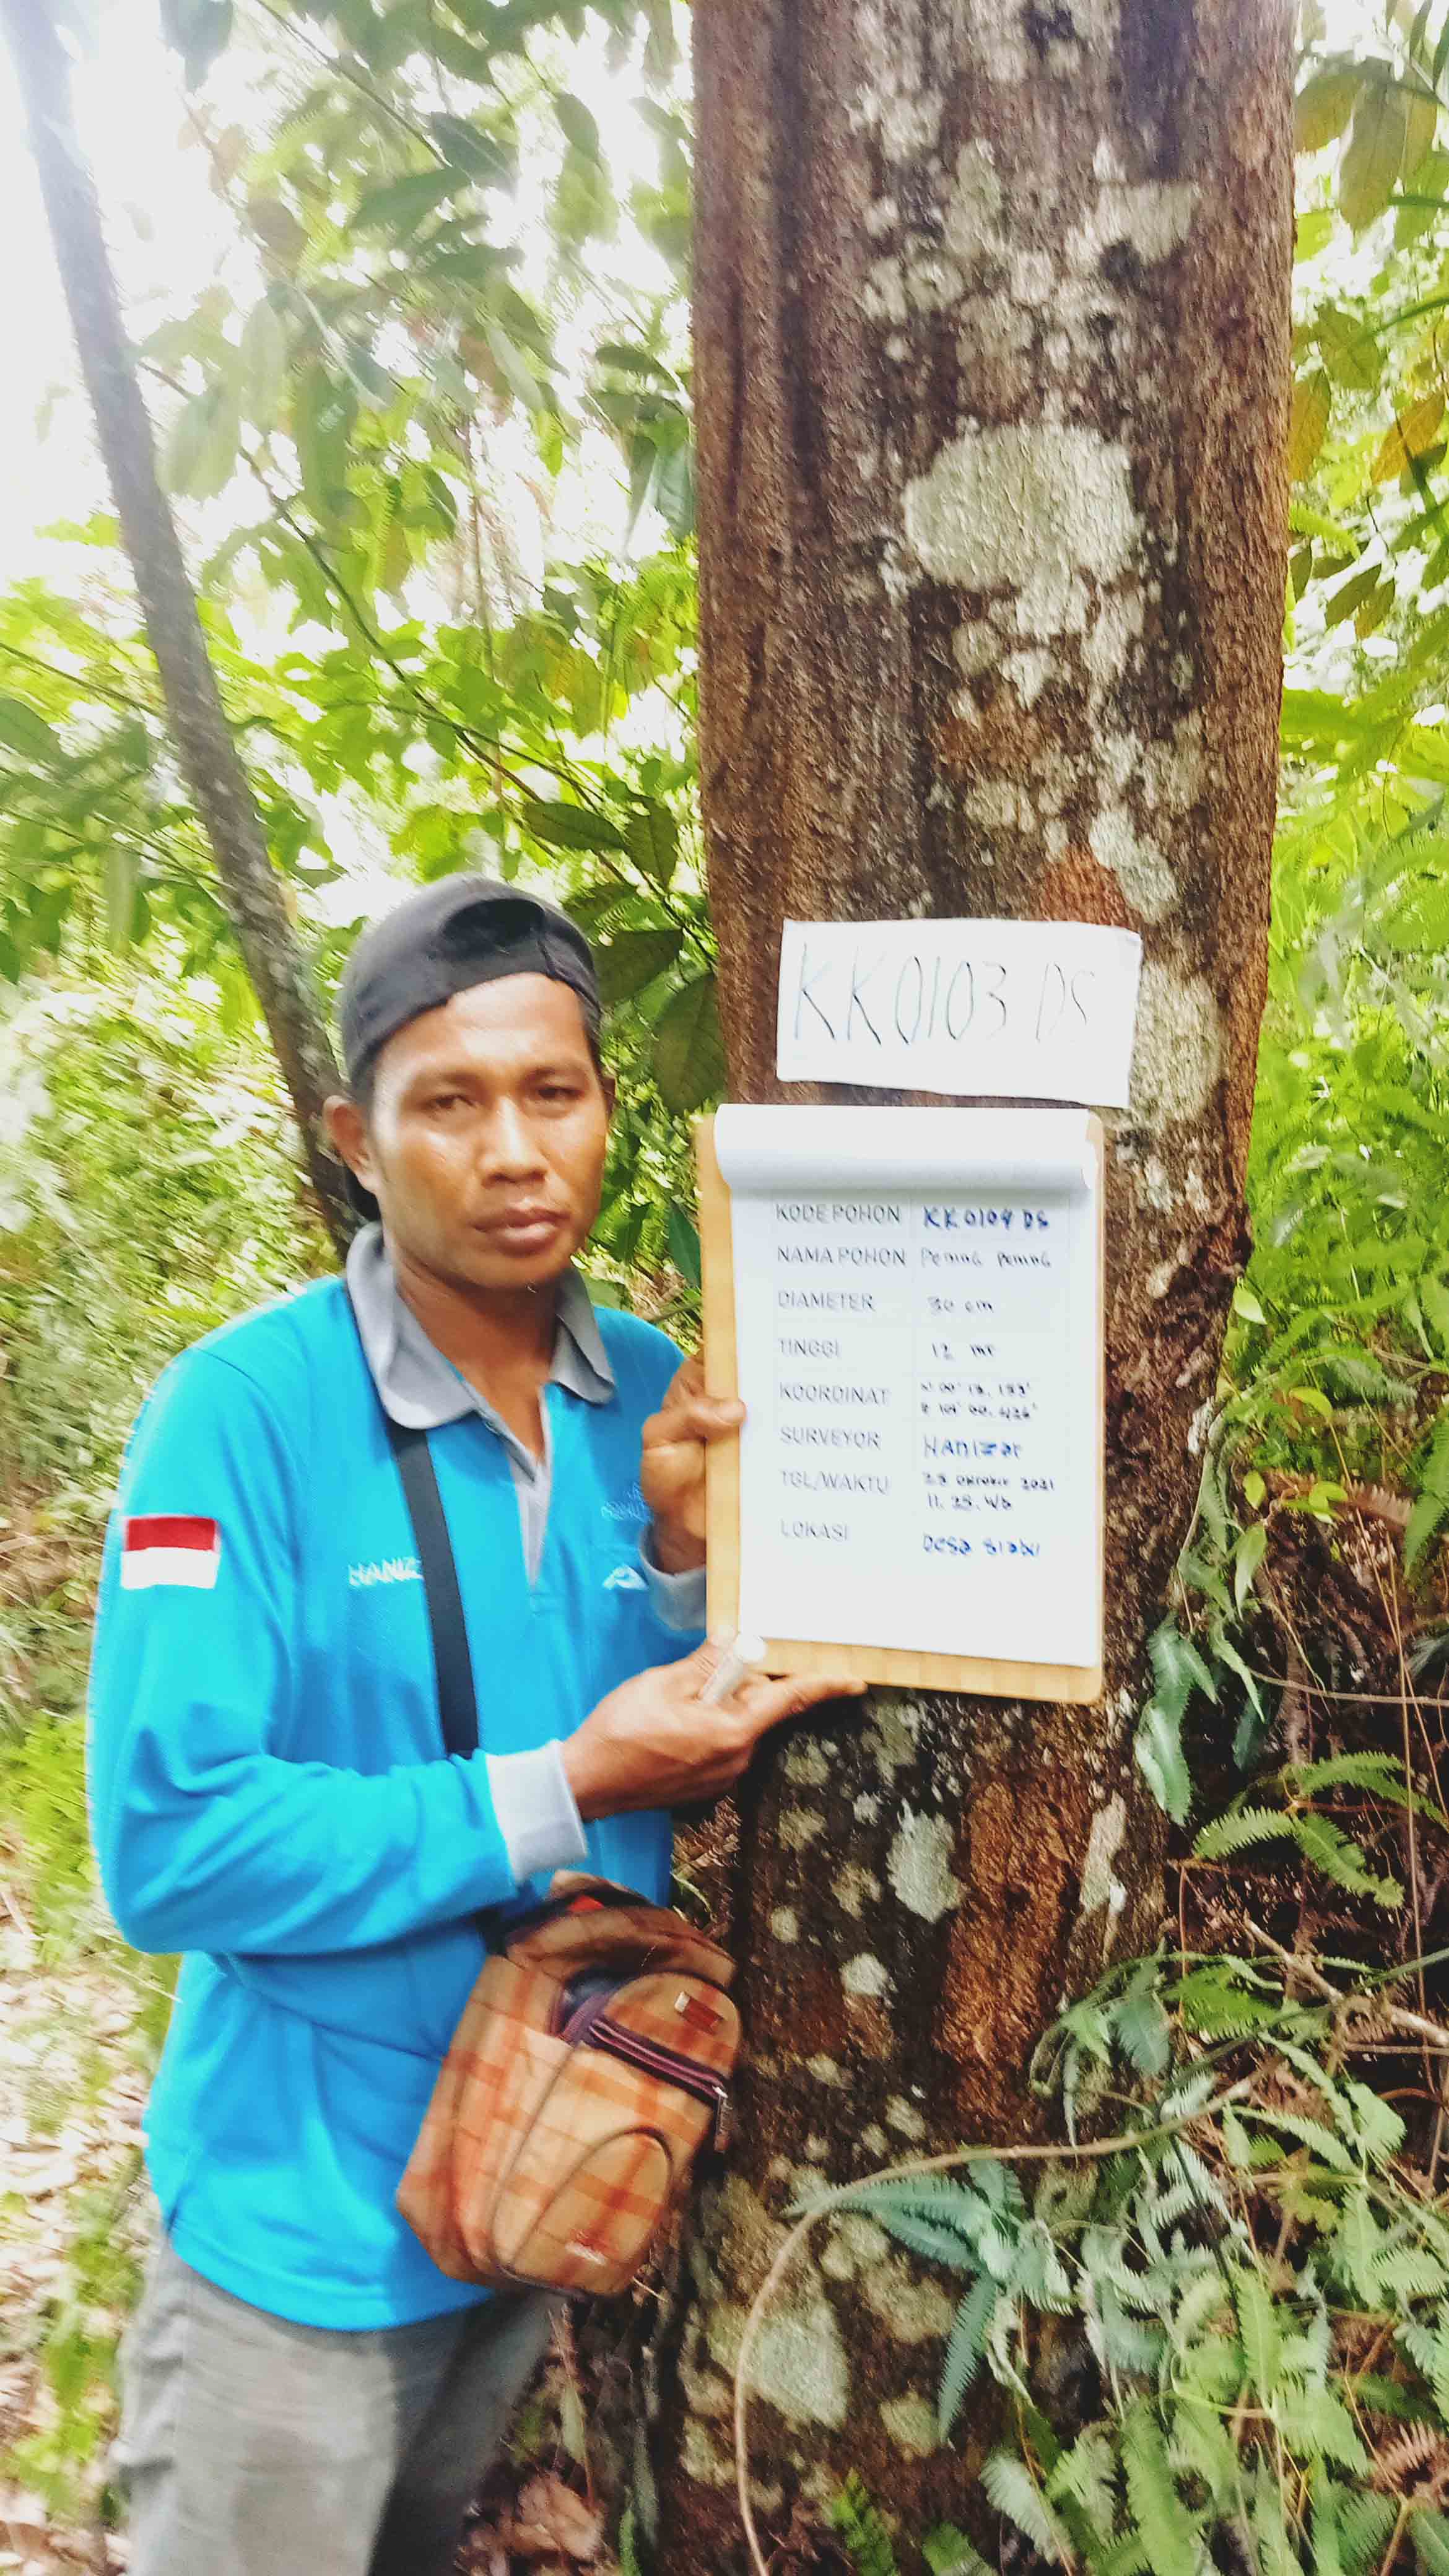 KK0103 DS
KODE POHON KK0104 DS
NAMA POHON Pening Pening
DIAMETER 30 cm
TINGGI 12 mr
KOORDINAT N 00° 13. 153'
E 101° 00. 426'
SURVEYOR HANIZar
TGL/WAKTU 28 oktober 2021
11. 28. Wb
LOKASI Desa siabu
HANIZ